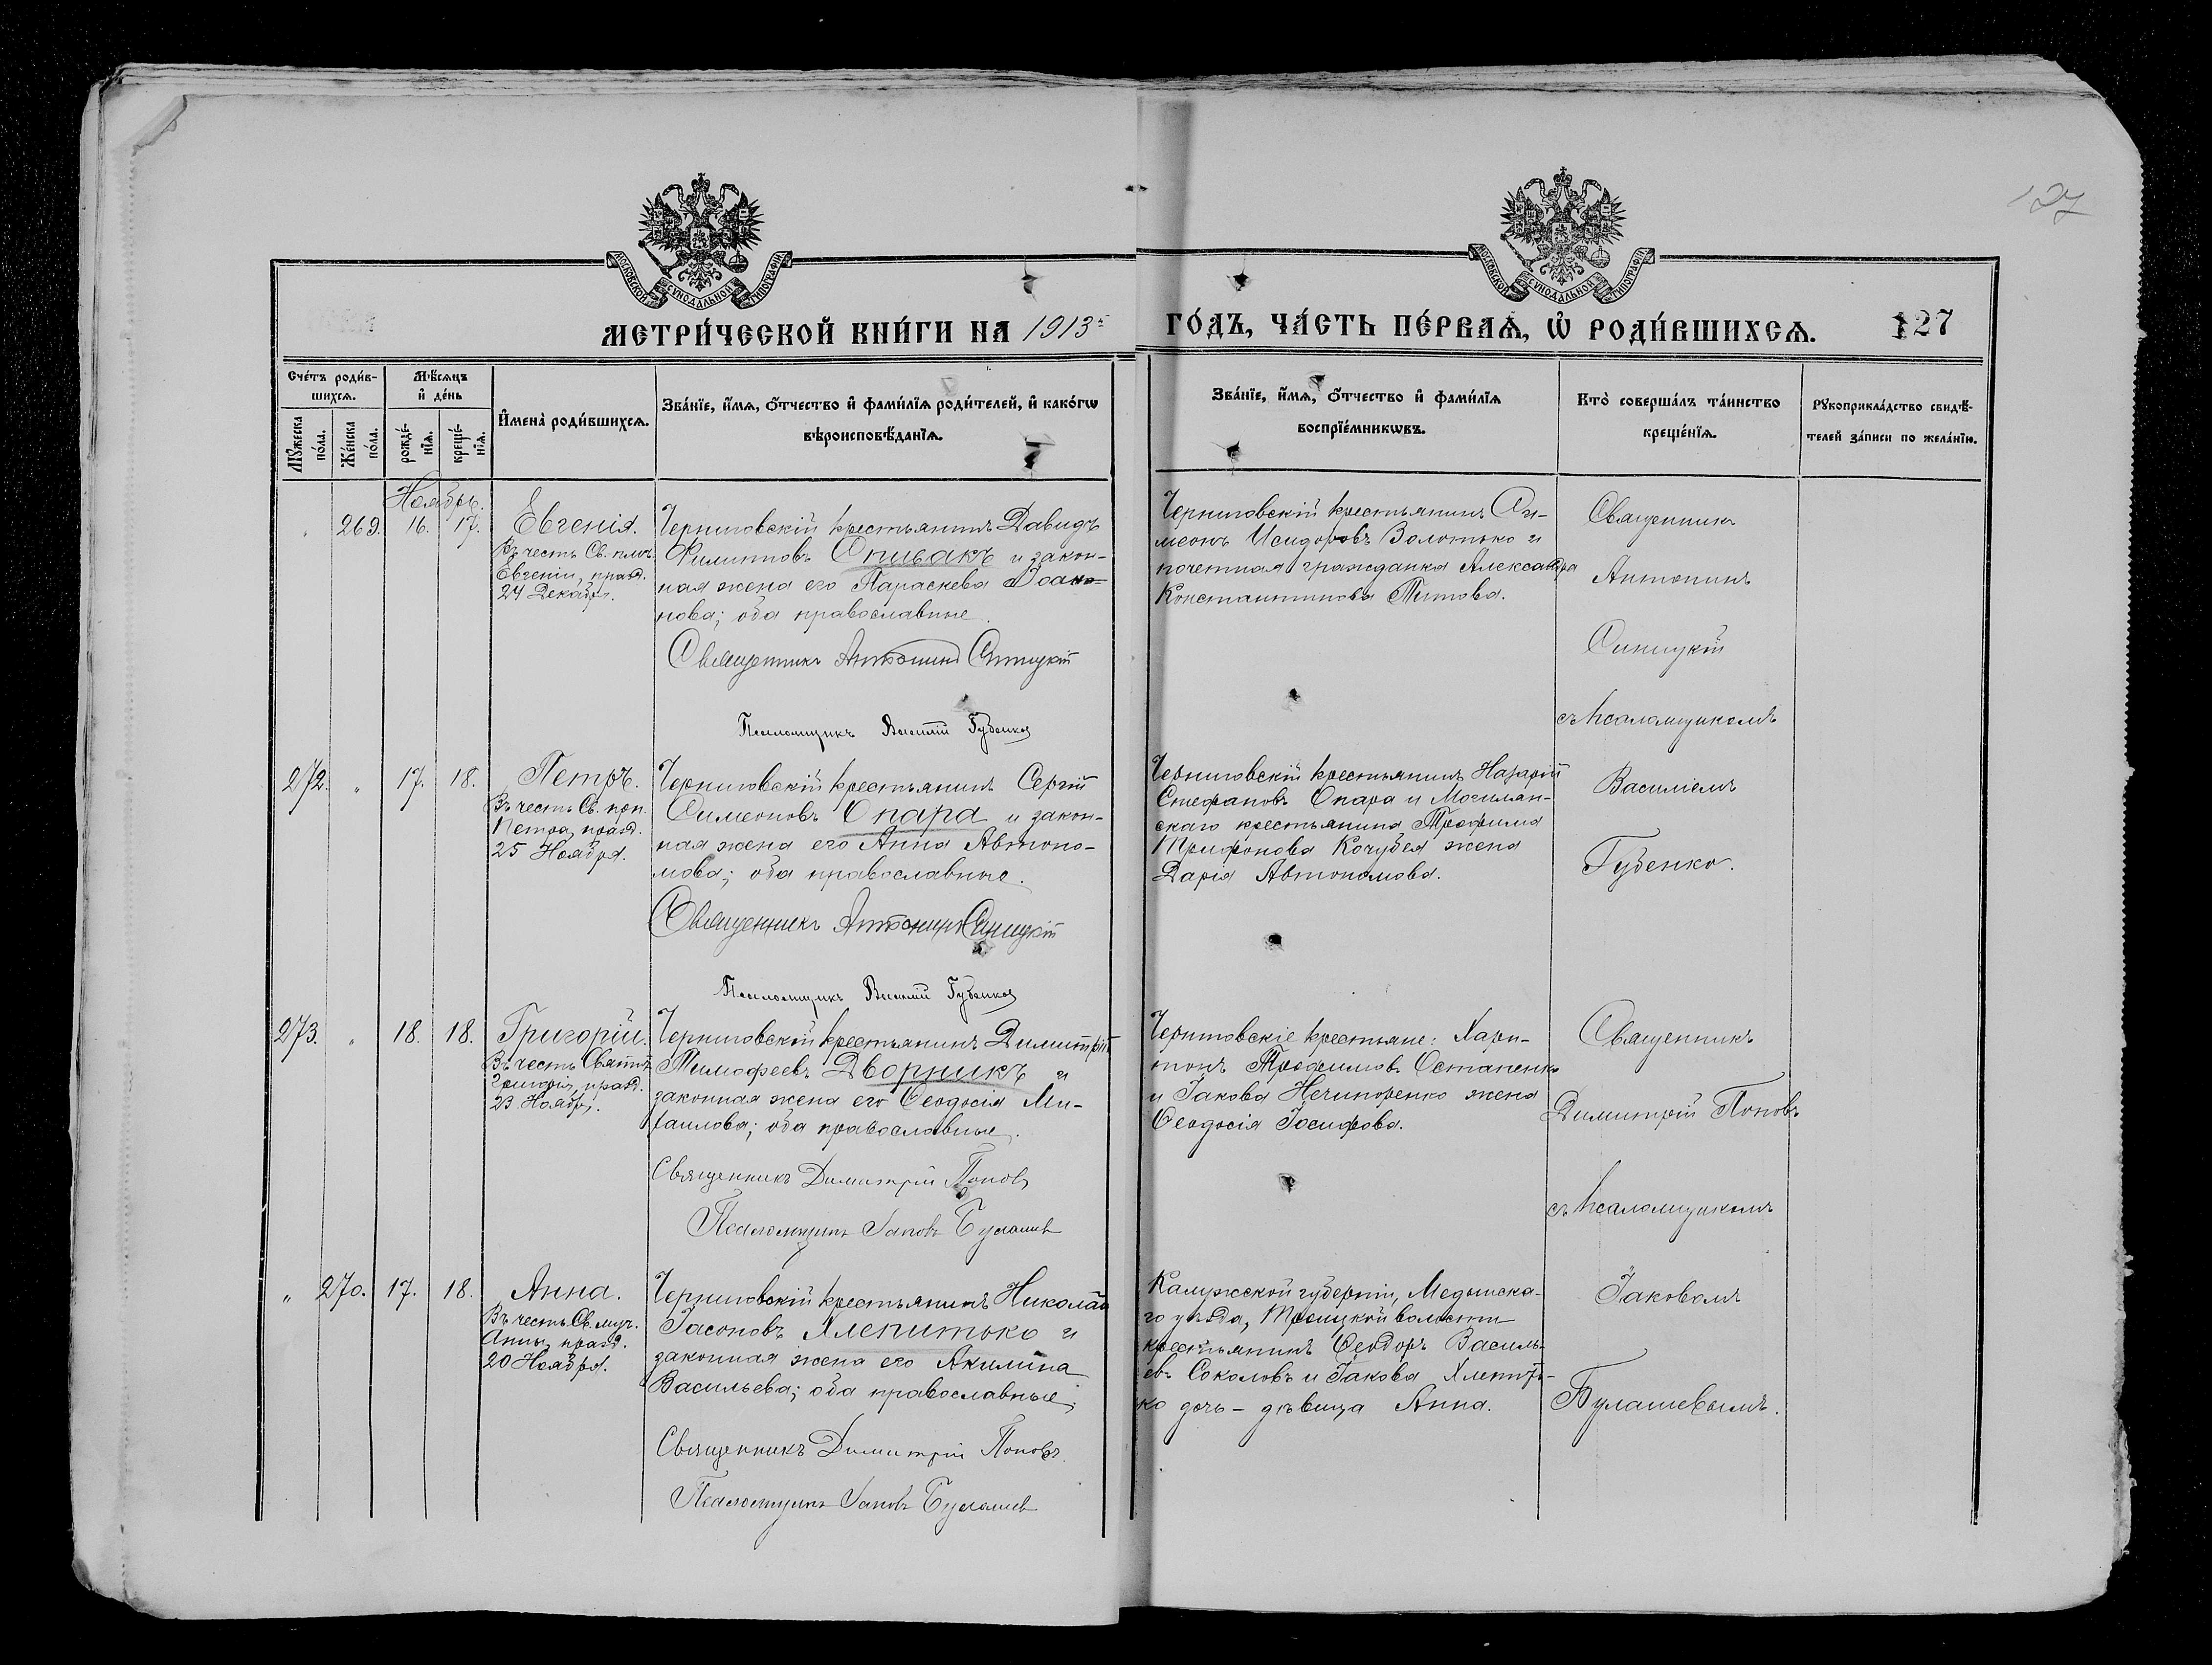 127
МОСКОВСКОЙ СѴНОДАЛЬНОЙ ТИПОГРАФІИ
МОСКОВСКОЙ СѴНОДАЛЬНОЙ ТИПОГРАФІИ
МЕТРИ́ЧЕСКОЙ КНИ́ГИ НА 1913 ГО́ДЪ, ЧА́СТЬ ПЕ́РВАѦ, Ѡ҆ РОДИ́ВШИХСѦ. 127
Сче́тъ роди́в-
шихсѧ.
Мꙋ́жеска по́ла.
Же́нска по́ла.
Мѣ́сѧцъ
и҆ де́нь
рожде́-
нїѧ.
креще́-
нїѧ.
И҆мена̀ роди́вшихсѧ.
Зва́нїе, и҆́мѧ, ѻ҆́тчество и҆ фами́лїѧ роди́телей, и҆ како́гѡ
вѣроисповѣ́данїѧ.
Зва́нїе, и҆́мѧ, ѻ҆́тчество и҆ фами́лїѧ
воспрїе́мникѡвъ.
Кто̀ соверша́лъ та́инство
креще́нїѧ.
Рꙋкоприкла́дство свидѣ́-
телей за́писи по жела́нїю.
Ноябрь.
" 269. 16. 17. Евгенія.
Въ честь Св. плч.
Евгеніи, празд.
24 Декабря.
Черниговскій крестьянинъ Давидъ
Филиповъ Спивакъ и закон-
ная жена его Параскева Іоан-
нова; оба православные.
Священникъ Антонинъ Синицкій
Псаломщикъ Василій Губенко
Черниговскій крестьянинъ Си-
меонъ Исидоровъ Золотько и
почетная гражданка Александра
Константинова Титова.
Священникъ
Антонинъ
Синицкій
съ псаломщикомъ
272. " 17. 18. Петръ.
Въ честь Св.
Петра, празд.
25 Ноября.
Черниговскій крестьянинъ Сергій
Симеоновъ Опара и закон-
ная жена его Анна Автоно-
мова; оба православные.
Священникъ Антонинъ Синицкій
Псаломщикъ Василій Губенко
Черниговскій крестьянинъ Назарій
Стефановъ Опара и Могилян-
скаго крестьянина Трофима
Трифонова Кочубея жена
Дарія Автономова.
Василіемъ
Губенко.
273. " 18. 18. Григорій.
Въ честь Святит.
Григорія, празд.
23 Ноября.
Черниговскій крестьянинъ Димитрій
Тимофеевъ Дворникъ и
законная жена его Ѳеодосія Ми-
хаилова; оба православные.
Священникъ Димитрій Поповъ
Псаломщикъ Іаковъ Булашев
Черниговскіе крестьяне: Хари-
тонъ Трофимовъ Остапенко
и Іакова Нечипоренко жена
Ѳеодосія Іосифова.
Священникъ
Димитрій Поповъ
съ псаломщикомъ
" 270. 17. 18. Анна.
Въ честь Св. муч.
Анны, празд.
20 Ноября.
Черниговскій крестьянинъ Николай
Іасоновъ Хлепитько и
законная жена его Акилина
Васильева; оба православные.
Священникъ Димитрій Поповъ.
Псаломщикъ Іаковъ Булашев
Калужской губерніи, Медынска-
го уѣзда, Троицкой волости
крестьянинъ Ѳеодоръ Василь-
евъ Соколовъ и Іакова Хлепить-
ко дочь - дѣвица Анна.
Іаковомъ
Булашевымъ.